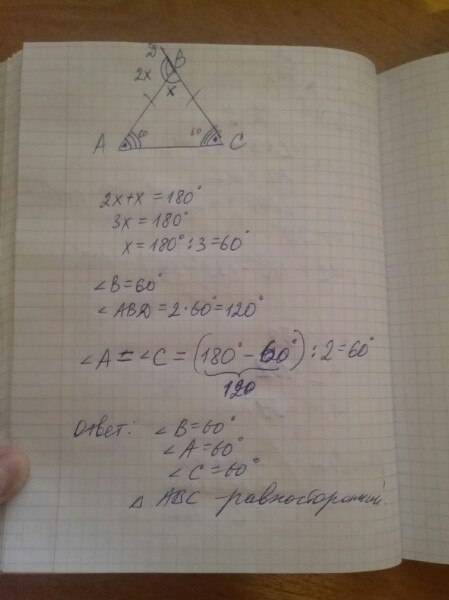 D
B
2x
x
A
60
60
C
2x+x=180°
3x=180°
x=180°:3=60°
∠B=60°
∠ABD=2·60°=120°
∠A=∠C=(180°-60°):2=60°
120
Ответ: ∠B=60°
∠A=60°
∠C=60°
△ ABC - равносторонний.